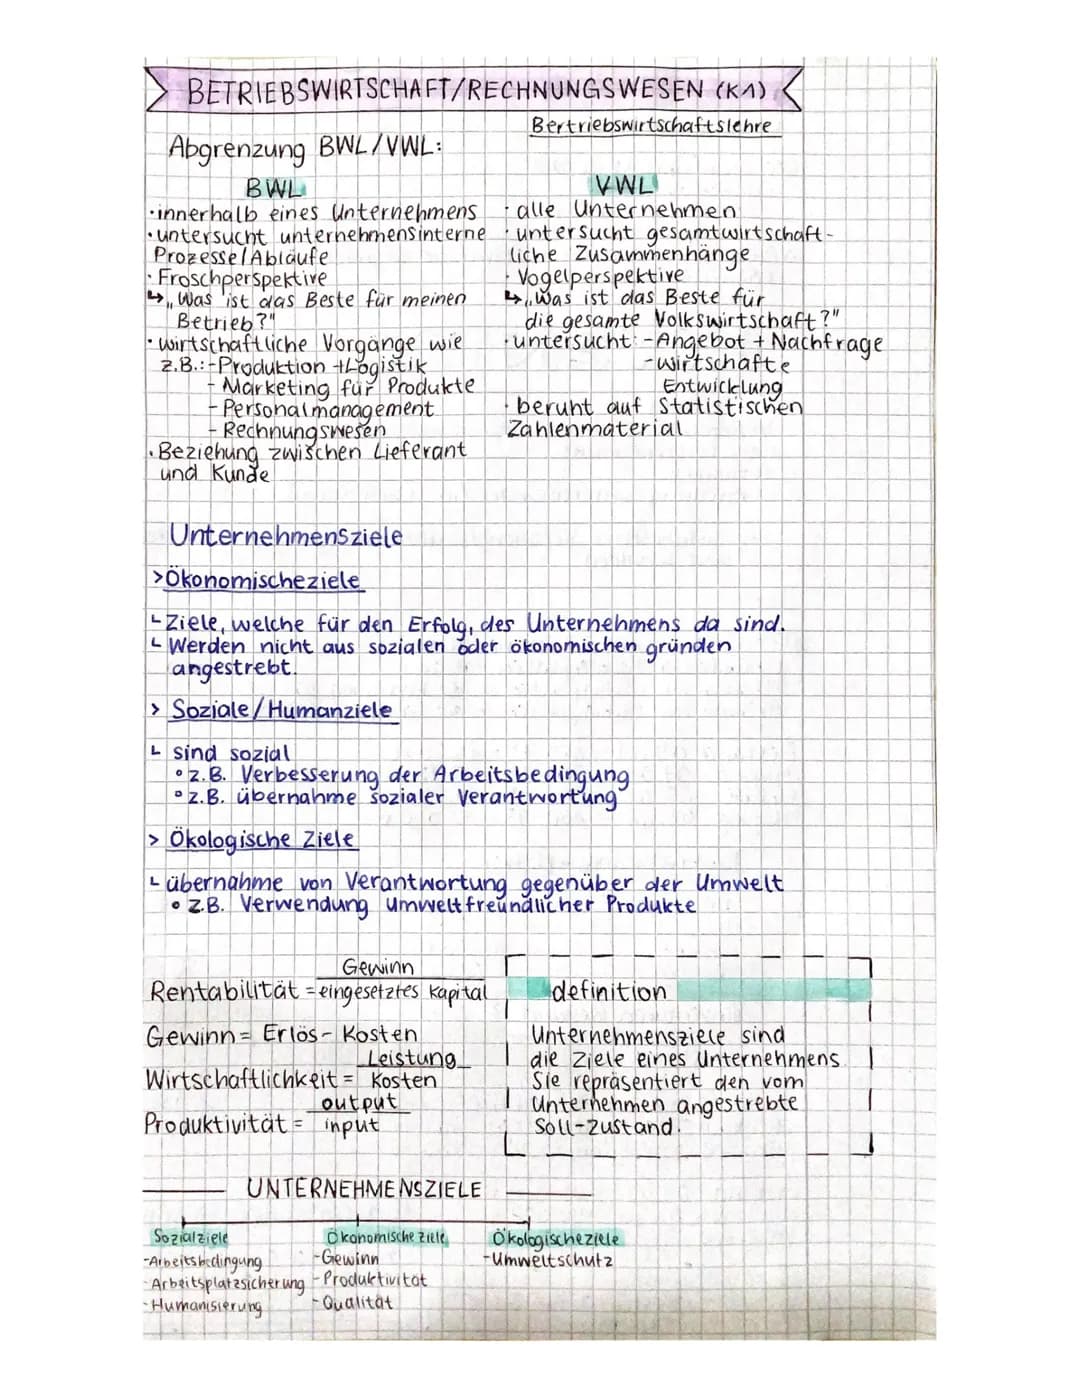 BETRIEBSWIRTSCHAFT/RECHNUNGSWESEN (K1)
Bertriebswirtschaftslehre
Abgrenzung BWL/VWL:
BWL
·innerhalb eines Unternehmens
·untersucht unternehmensinterne
Prozesse/Abläufe
·Froschperspektive
↳„Was ist das Beste für meinen
Betrieb?"
·wirtschaftliche Vorgänge wie
z.B.:-Produktion +Logistik
- Marketing für Produkte
-Personalmanagement
-Rechnungswesen
·Beziehung zwischen Lieferant
und Kunde
VWL
·alle Unternehmen
·untersucht gesamtwirtschaft-
liche Zusammenhänge
·Vogelperspektive
↳„Was ist das Beste für
die gesamte Volkswirtschaft?"
·untersucht:-Angebot + Nachfrage
-wirtschafte
Entwicklung
·beruht auf Statistischen
Zahlenmaterial
Unternehmensziele
>Ökonomischeziele
└Ziele, welche für den Erfolg, des Unternehmens da sind.
└Werden nicht aus sozialen oder ökonomischen gründen
angestrebt.
> Soziale/Humanziele
└ sind sozial
°z.B. Verbesserung der Arbeitsbedingung
°z.B. übernahme sozialer Verantwortung
> Ökologische Ziele
└übernahme von Verantwortung gegenüber der Umwelt
• z.B. Verwendung umweltfreundlicher Produkte
Gewinn
Rentabilität =eingesetztes kapital
Gewinn= Erlös- Kosten
Leistung
Wirtschaftlichkeit = Kosten
output
Produktivität = input
definition
Unternehmensziele sind
die Ziele eines Unternehmens.
Sie repräsentiert den vom
Unternehmen angestrebte
Soll-Zustand.
UNTERNEHMENSZIELE
Sozialziele
-Arbeitsbedingung
-Arbeitsplatzsicherung
-Humanisierung
Ökonomische ziele
-Gewinn
-Produktivität
-Qualität
Ökologischeziele
-Umweltschutz